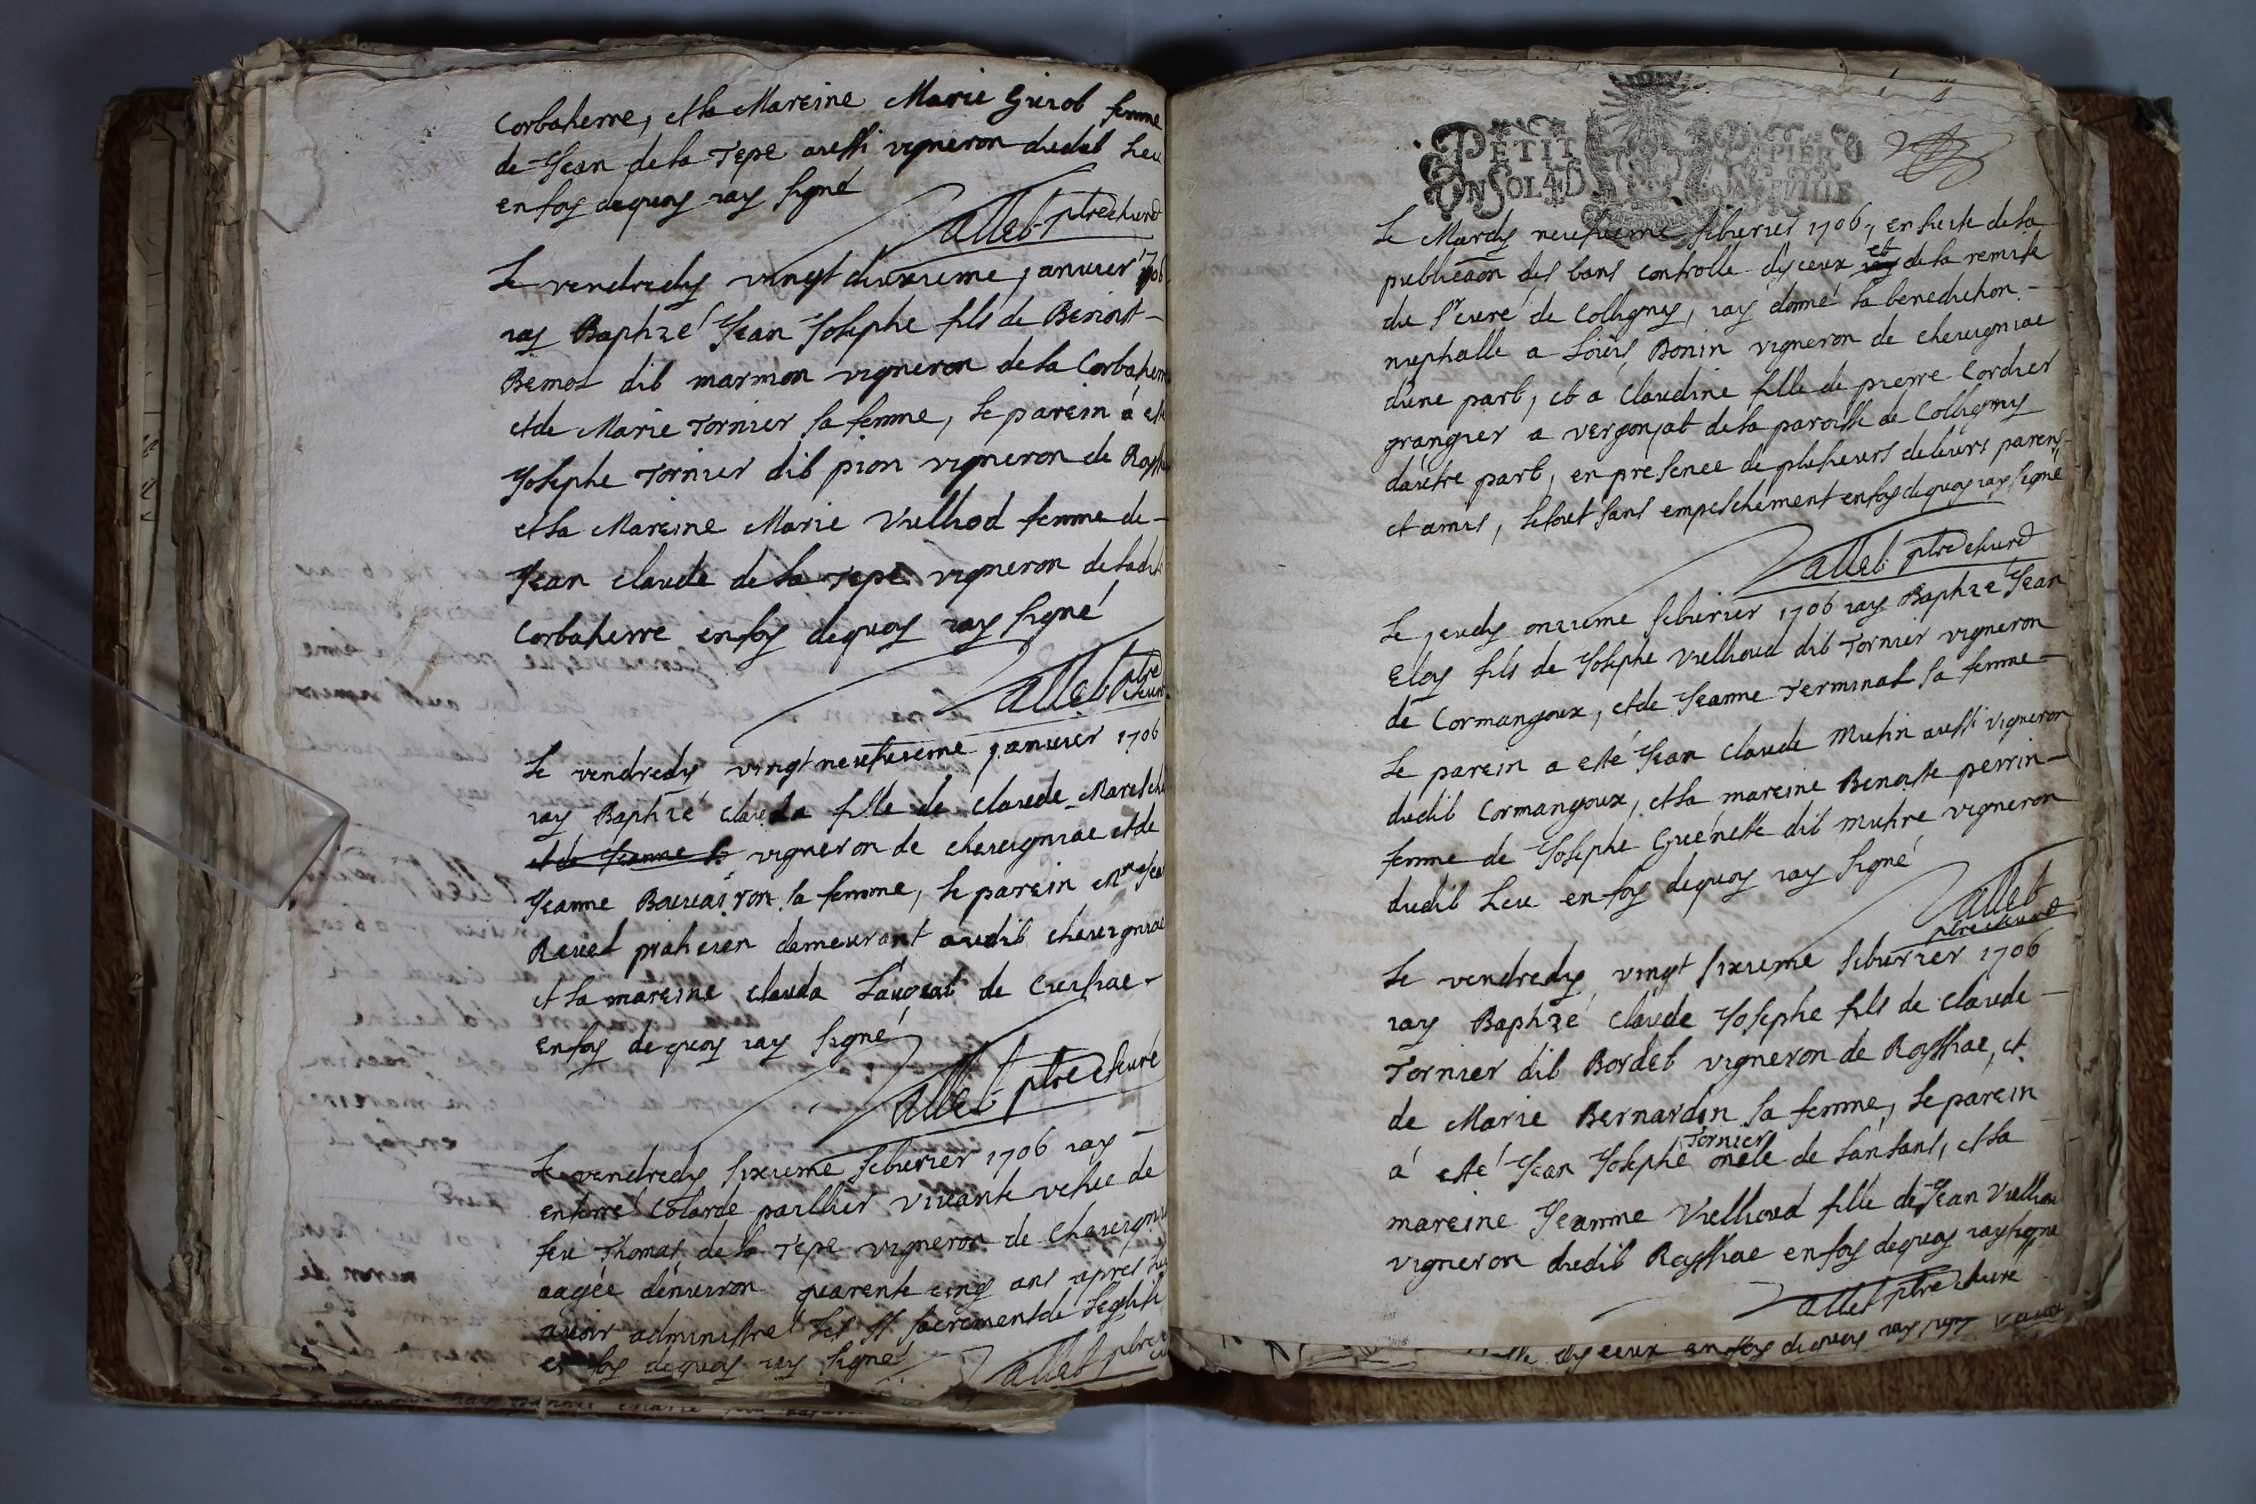 Corbaterre, et la Mareine Marie Guiot femme
de Jean de la Tepe aussi vigneron dudit lieu
en foy dequoy iay signé
Vallet ptre et curé
Le vendredy vingt deuxieme januier 1706
iay Baptizé Jean Josephe fils de Benoist
Bemot dit marmon vigneron de la Corbaterre
et de Marie Tornier sa femme, le parein á esté
Josephe Tornier dit pion vigneron de
et la Mareine Marie Vielliod femme de
Jean claude de la Tepe vigneron de ladite
Corbaterre en foy dequoy iay signé
Vallet ptre et curé
Le vendredy vingt neufuieme januier 1706
iay Baptizé clauda fille de claude
et de Jeanne la vigneron de cheuigniac et de
Jeanne sa femme, le parein Mre
Reuet praticien demeurant audit cheuigniac
et la mareine clauda de Cuisiac
en foy de quoy iay signé
Vallet ptre et curé
Le vendredy sixieme feburier 1706 iay
enterré Colarde paillier viuante vefue de
feu Thomas de la Tepe vigneron de
aagée denuiron quarente cinq ans apres luy
auoir administré les St sacrements de
en foy de quoy iay signé
Vallet ptre
PETIT PAPIER
UN SOL 4 D
Le Mardy neufuieme feburier 1706, en suite de la
publicaon des bans controlle dyceux et de la remise
du Sr curé de Colligny, iay donné la benediction
nuptialle a Loüis Bonin vigneron de cheuigniac
dune part, et a Claudine fille de pierre Cordier
grangier a vergonjat de la paroisse de Colligny
dautre part, en presence de plusieurs de leurs parens
et amis, le tout sans empeschement en foy de quoy iay signé
Vallet ptre et curé
Le jeudy onzieme feburier 1706 iay Baptizé Jean
Eloy fils de Josephe viellioud dit Tornier vigneron
de Cormangoux, et de Jeanne Terminal sa femme
Le parein a esté Jean Claude Mutin aussi vigneron
dudit Cormangoux, et la mareine Benoiste perrin
femme de Josephe Guénette dit mutire vigneron
dudit lieu en foy dequoy iay signé
Vallet
ptre et curé
Le vendredy vingt sixieme feburier 1706
iay Baptizé claude Josephe fils de claude
Tornier dit Bordet vigneron de Roissiac, et
de Marie Bernardin sa femme, le parein
á esté Jean Josephe Tornier oncle de lanfant, et la
mareine Jeanne Viellioud fille de Jean Vielliou
vigneron dudit Roissiac en foy dequoy iay signé
Vallet ptre et curé
dyceux en foy de quoy iay signé